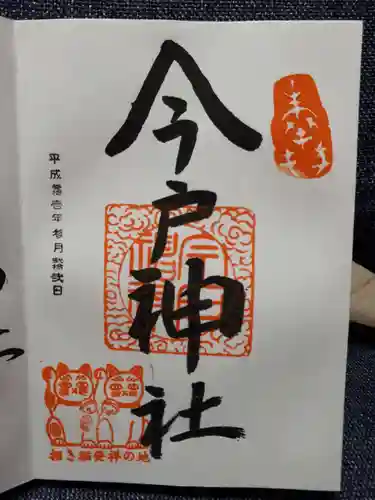 奉拝
今戸神社
平成 壱年 月拾弐日
招き猫発祥の地